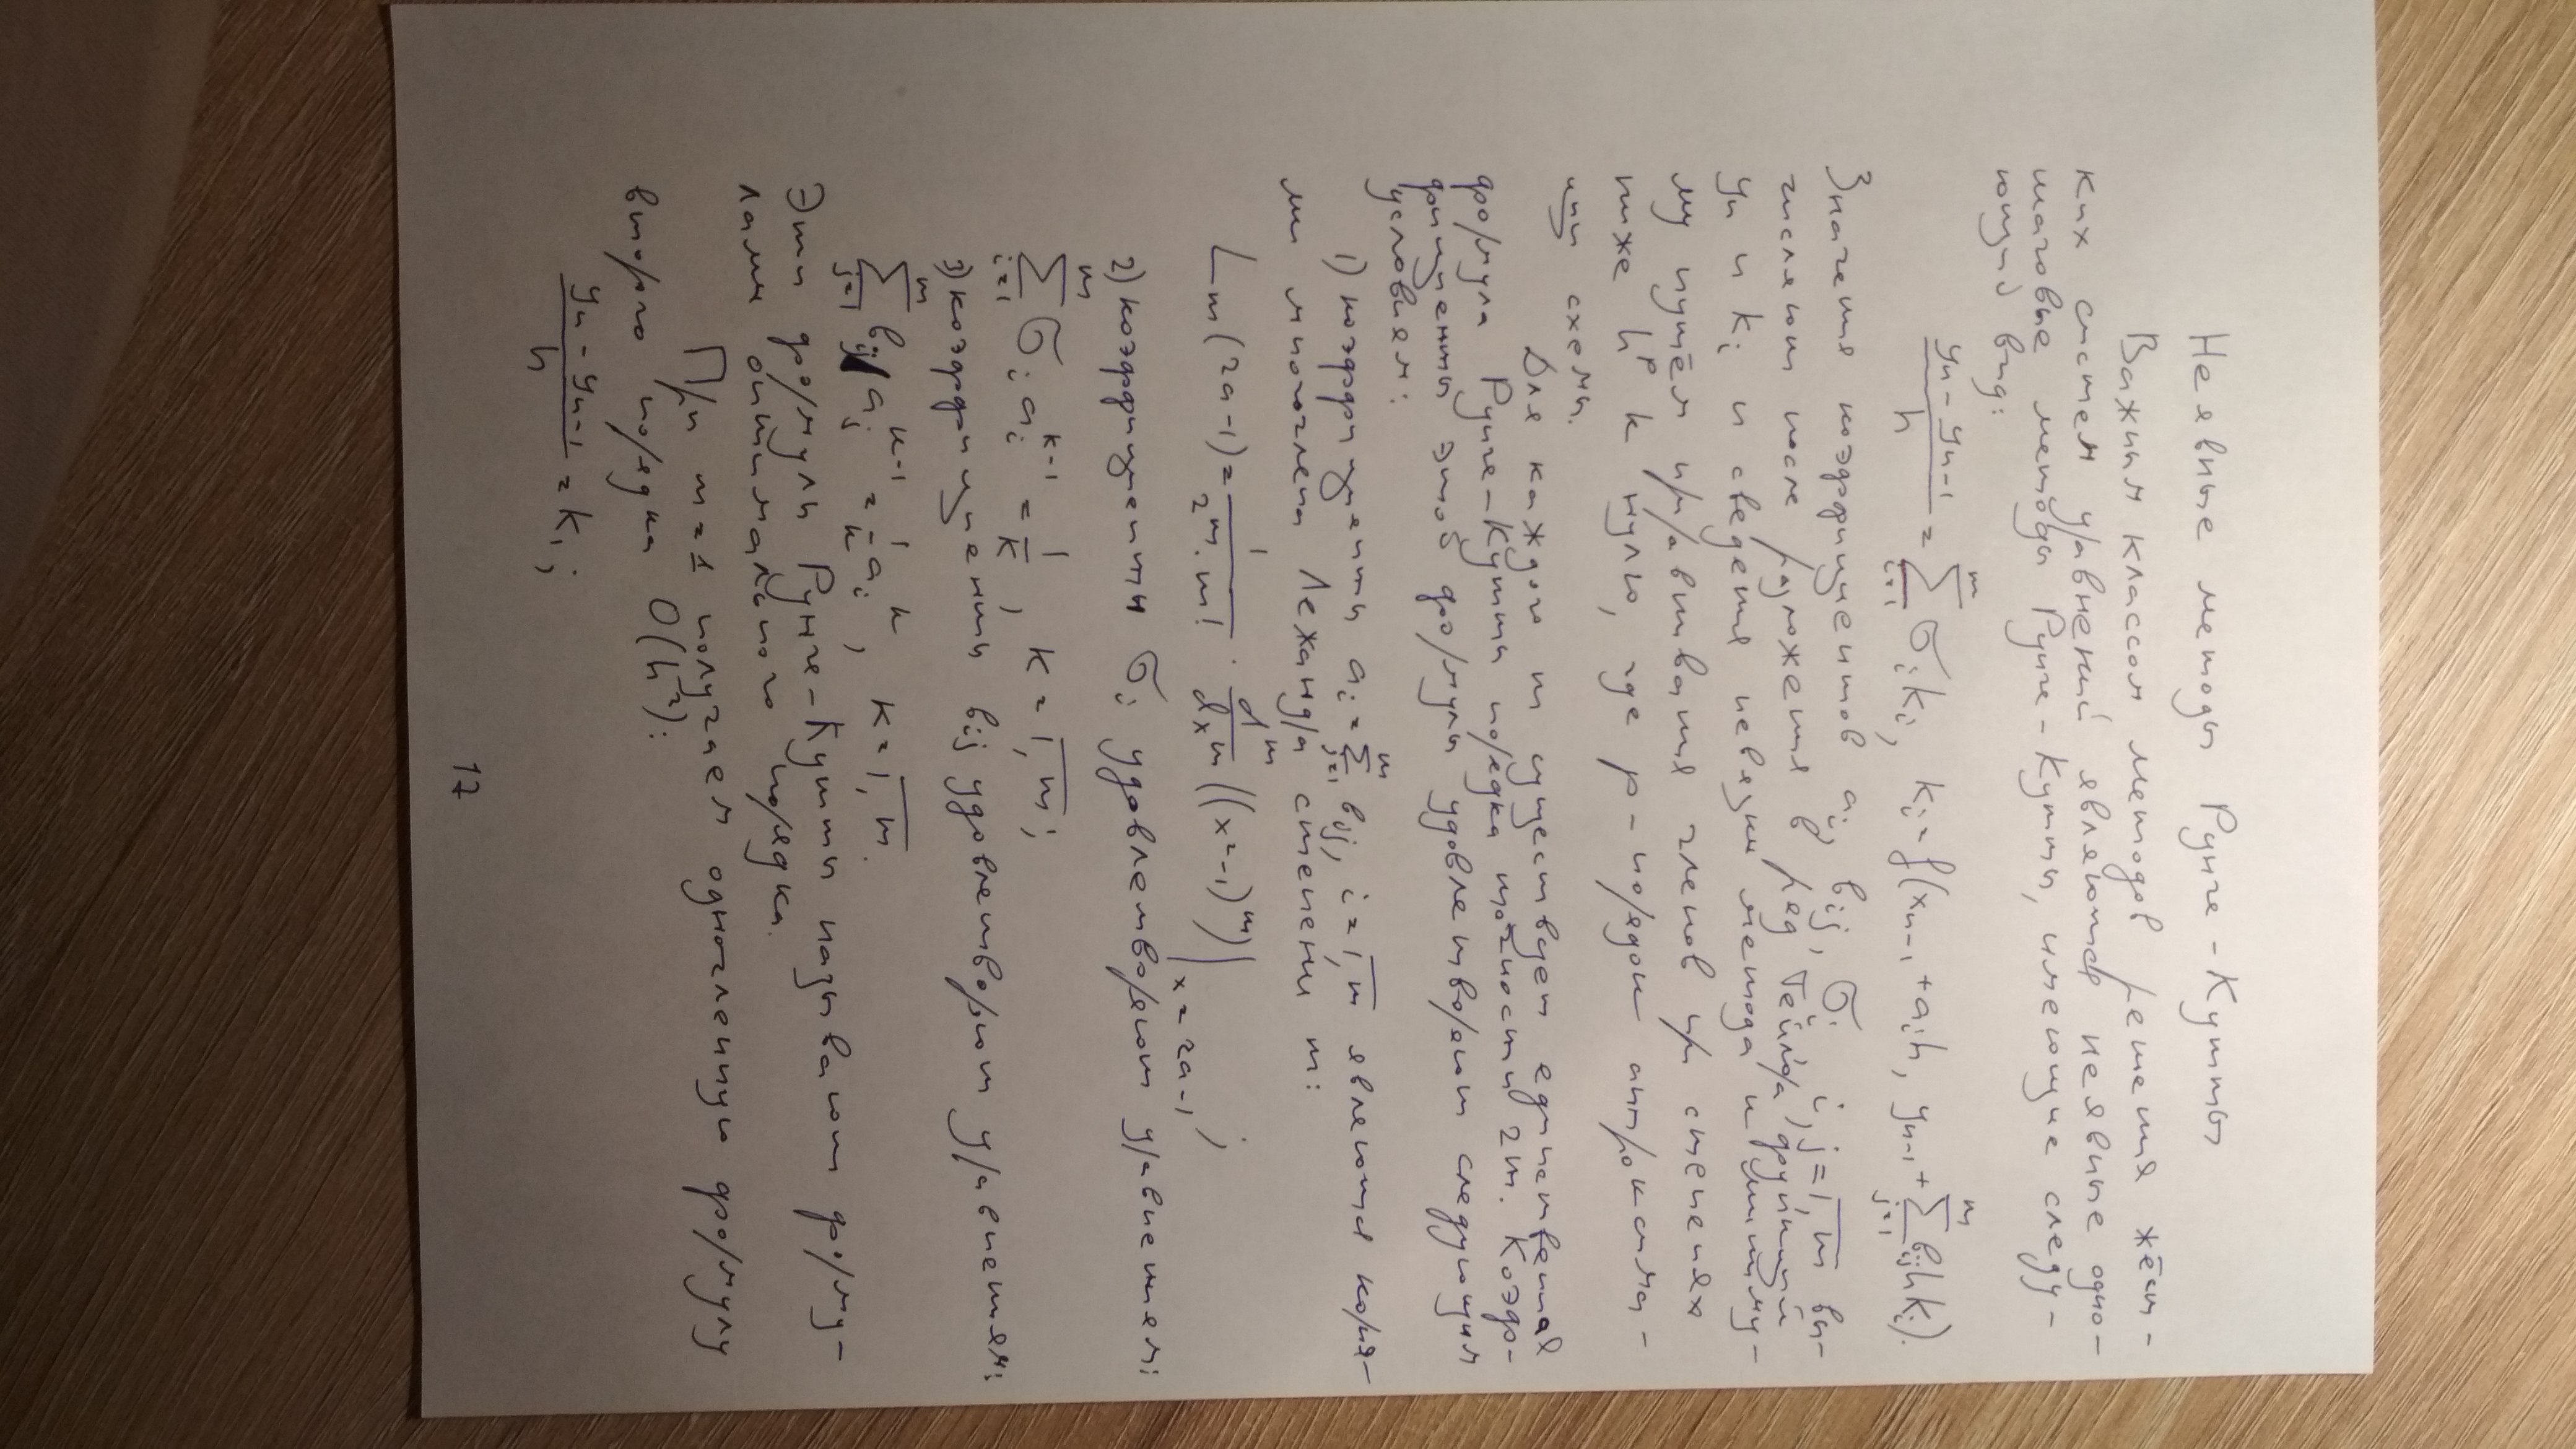 Неявные методы Рунге-Кутты
Важным классом методов решения жёст-
ких систем уравнений являются неявные одно-
шаговые методы Рунге-Кутты, имеющие следу-
ющий вид:
(yₙ - yₙ₋₁)/h = ∑_{i=1}^{m} σᵢkᵢ, kᵢ = f(xₙ₋₁ + aᵢh, yₙ₋₁ + ∑_{j=1}^{m} bᵢⱼhkⱼ).
Значения коэффициентов aᵢ, bᵢⱼ, σᵢ, i, j = \overline{1, m} вы-
числяют после разложения в ряд Тейлора функций
yₙ и kᵢ и сведения невязки метода к миниму-
му путём приравнивания членов при степенях
ниже h^p к нулю, где p - порядок аппроксима-
ции схемы.
Для каждого m существует единственная
формула Рунге-Кутты порядка точности 2m. Коэф-
фициенты этой формулы удовлетворяют следующим
условиям:
1) коэффициенты aᵢ = ∑_{j=1}^{m} bᵢⱼ, i = \overline{1, m} являются корня-
ми многочлена Лежандра степени m:
L_m(2a-1) = 1/(2^m · m!) · d^m/dx^m ((x²-1)^m)|_{x=2a-1};
2) коэффициенты σᵢ удовлетворяют уравнениям:
∑_{i=1}^{m} σᵢ aᵢ^{k-1} = 1/k, k = \overline{1, m};
3) коэффициенты bᵢⱼ удовлетворяют уравнениям:
∑_{j=1}^{m} bᵢⱼ aⱼ^{k-1} = 1/k aᵢ^k, k = \overline{1, m}.
Эти формулы Рунге-Кутты называют форму-
лами оптимального порядка.
При m = 1 получаем одночленную формулу
второго порядка O(h²):
(yₙ - yₙ₋₁)/h = k₁;
17